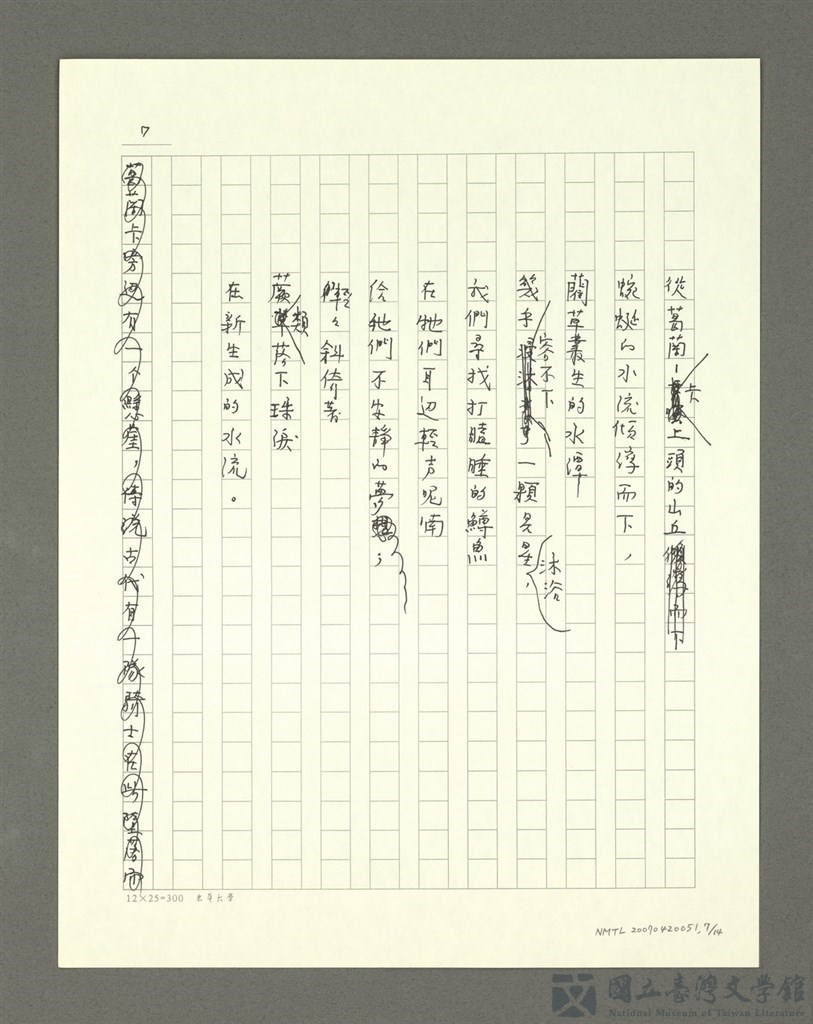 7
從葛蘭卡上頭的山丘
蜿蜒的水流傾淳而下，
藺草叢生的水潭
幾乎容不下一顆星星，沐浴
我們尋找打瞌睡的鱒魚
在牠們耳边輕声呢喃
給牠們不安靜的夢；
輕々斜倚著
蕨類落下珠淚
在新生成的水流。
葛蘭卡旁边有一个懸崖，傳說古代有一隊騎士在此墜落而
12×25=300 東華大學
NMTL 20070420051_7/14
國立臺灣文學館
National Museum of Taiwan Literature